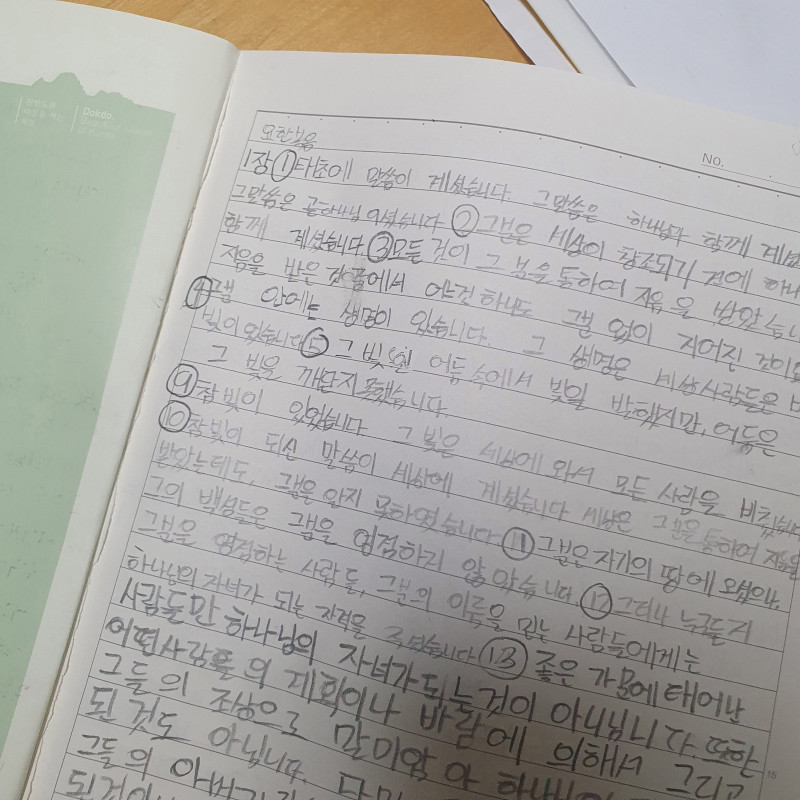 Dokdo
No.
요한복음
1장 ① 태초에 말씀이 계셨습니다. 그말씀은 하나님과 함께 계셨
그말씀은 곧하나님 이셨습니다 ② 그분은 세상이 창조되기 전에 하나
함께 계셨습니다. ③ 모든 것이 그 분을 통하여 지음 을 받았습니
지음을 받은 것 중에서 어느것 하나도 그분 없이 지어진 것이
④ 그분 안에는 생명이 있습니다. 그 생명은 세상사람들은
빛이 었습니다 ⑤ 그 빛이 어둠 속에서 빛을 발했지만, 어둠은
그 빛을 깨닫지 못했습니다.
⑨ 참 빛이 있었습니다 그 빛은 세상에 와서 모든 사람을 비췄습니
⑩ 참 빛이 되신 말씀이 세상에 계셨습니다 세상은 그분을 통하여 지음을
받았는데도, 그분을 알지 못하였습니다 ⑪ 그분은 자기의 땅에 오셨으나,
그의 백성들은 그분을 영접하지 않았습니다. ⑫ 그러나 누구든지
그분을 영접하는 사람들, 그분의 이름을 믿는 사람들에게는
하나님의 자녀가 되는 자격을 주셨습니다 ⑬ 좋은 가문에 태어난
사람들만 하나님의 자녀가 되는 것이 아닙니다. 또한
어떤사람들의 계획이나 바람에 의해서 그리고
그들의 조상으로 말미암아 하나님의
된 것도 아닙니다.
그들의 아버지
15